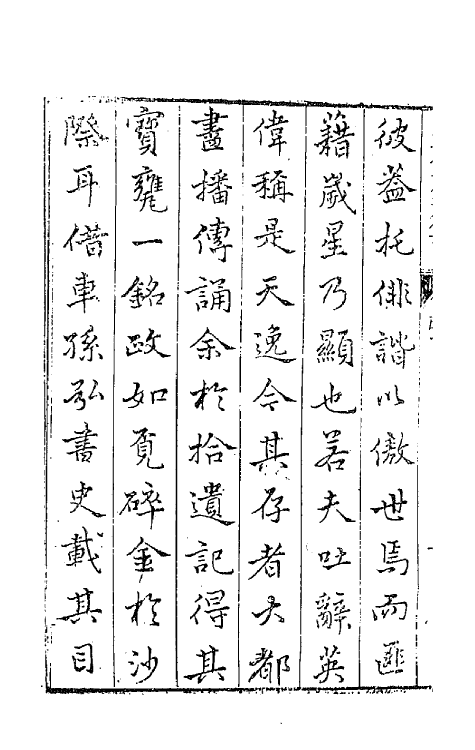 彼葢托俳諧以傲世焉而匪
藉歲星乃顯也若夫吐辭英
偉稱是天逸今其存者大都
盡播傳誦余於拾遺記得其
寶甕一銘政如覓碎金於沙
際耳借車孫弘書史載其目